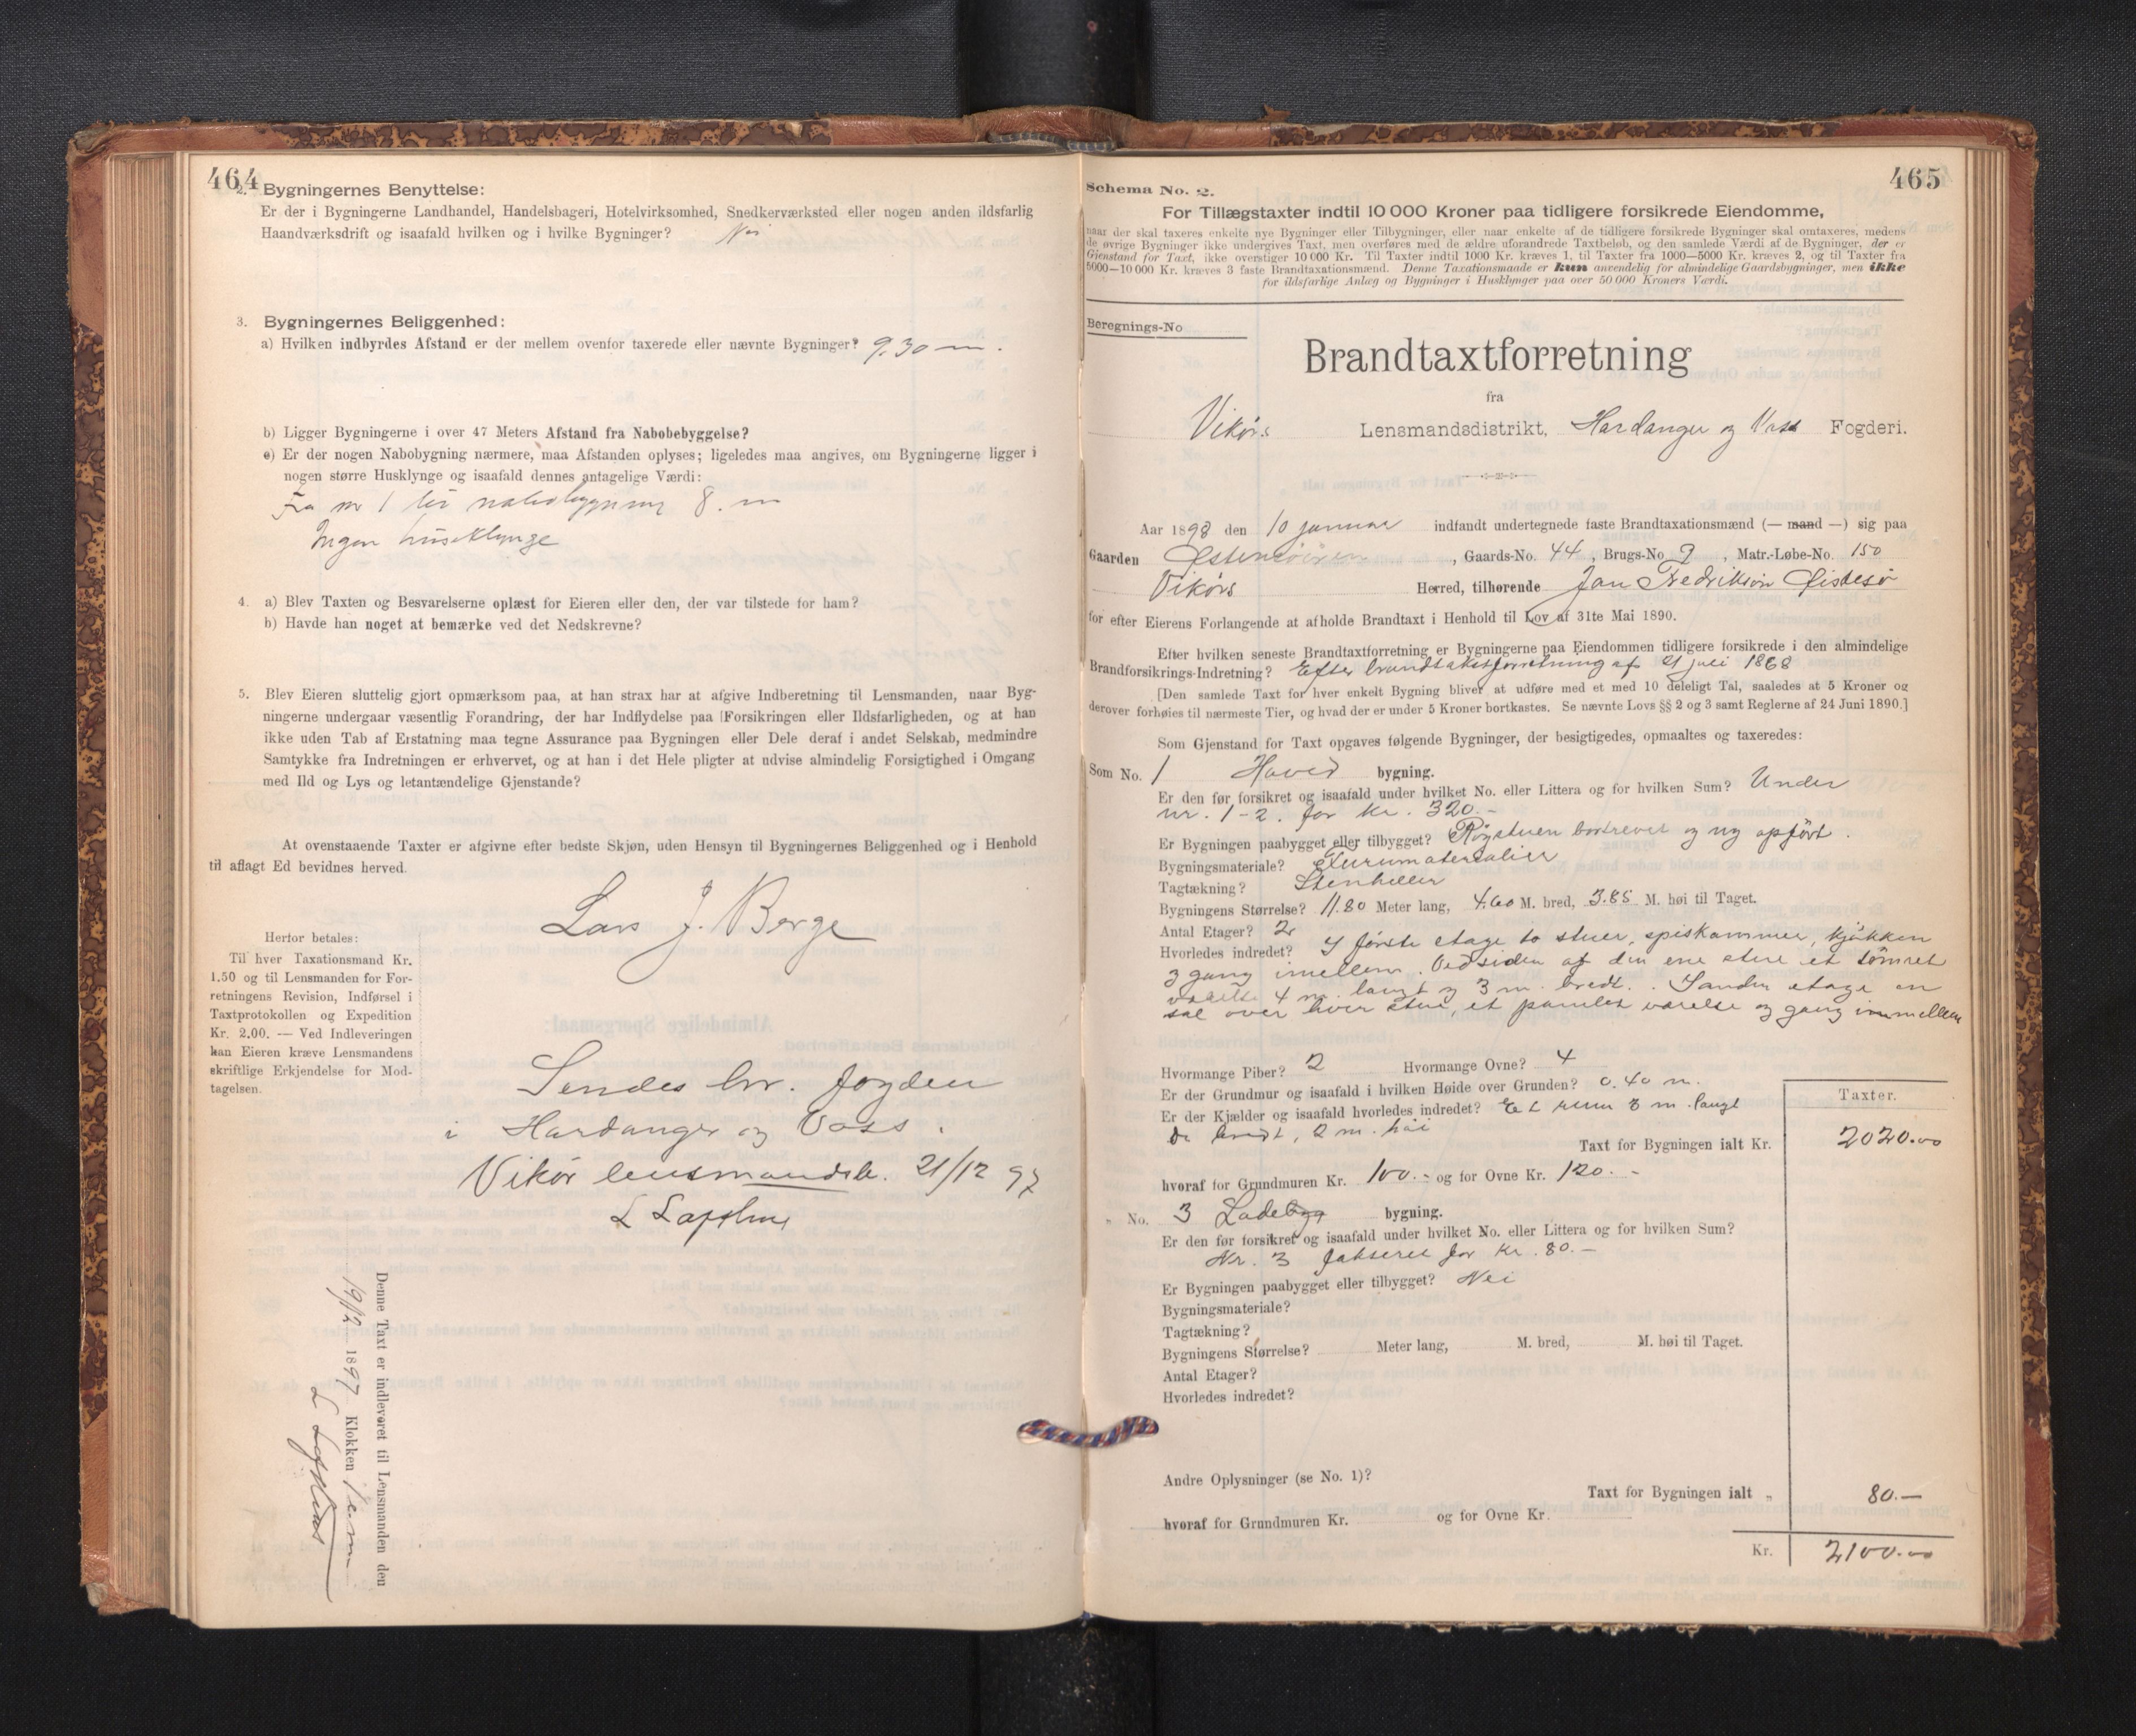 464
2. Bygningernes Benyttelse:
Er der i Bygningerne Landhandel, Handelsbageri, Hotelvirksomhed, Snedkerværksted eller nogen anden ildsfarlig
Haandværksdrift og isaafald hvilken og i hvilke Bygninger? Nei
3. Bygningernes Beliggenhed:
a) Hvilken indbyrdes Afstand er der mellem ovenfor taxerede eller nævnte Bygninger? 9.30 m.
b) Ligger Bygningerne i over 47 Meters Afstand fra Nabobebyggelse?
c) Er der nogen Nabobygning nærmere, maa Afstanden oplyses; ligeledes maa angives, om Bygningerne ligger i
nogen større Husklynge og isaafald dennes antagelige Værdi:
Fra nr 1 til nabobygning 8. m
Ingen husklynge
4. a) Blev Taxten og Besvarelserne oplæst for Eieren eller den, der var tilstede for ham?
b) Havde han noget at bemærke ved det Nedskrevne?
5. Blev Eieren sluttelig gjort opmærksom paa, at han strax har at afgive Indberetning til Lensmanden, naar Byg-
ningerne undergaar væsentlig Forandring, der har Indflydelse paa Forsikringen eller Ildsfarligheden, og at han
ikke uden Tab af Erstatning maa tegne Assurance paa Bygningen eller Dele deraf i andet Selskab, medmindre
Samtykke fra Indretningen er erhvervet, og at han i det Hele pligter at udvise almindelig Forsigtighed i Omgang
med Ild og Lys og letantændelige Gjenstande?
At ovenstaaende Taxter er afgivne efter bedste Skjøn, uden Hensyn til Bygningernes Beliggenhed og i Henhold
til aflagt Ed bevidnes herved.
Lars J. Berge
Herfor betales:
Til hver Taxationsmand Kr.
1.50 og til Lensmanden for For-
retningens Revision, Indførsel i
Taxtprotokollen og Expedition
Kr. 2.00. — Ved Indleveringen
kan Eieren kræve Lensmandens
skriftlige Erkjendelse for Mod-
tagelsen.
Sendes hr. fogden
i Hardanger og Voss.
Vikør lensmandsb. 21/12 97
L Lofthus
Denne Taxt er indleveret til Lensmanden den
19/12 1897 Klokken 1 em
L Lofthus
465
Schema No. 2.
For Tillægstaxter indtil 10 000 Kroner paa tidligere forsikrede Eiendomme,
naar der skal taxeres enkelte nye Bygninger eller Tilbygninger, eller naar enkelte af de tidligere forsikrede Bygninger skal omtaxeres, medens
de øvrige Bygninger ikke undergives Taxt, men overføres med de ældre uforandrede Taxtbeløb, og den samlede Værdi af de Bygninger, der er
Gjenstand for Taxt, ikke overstiger 10 000 Kr. Til Taxter indtil 1000 Kr. kræves 1, til Taxter fra 1000—5000 Kr. kræves 2, og til Taxter fra
5000—10 000 Kr. kræves 3 faste Brandtaxationsmænd. Denne Taxationsmaade er kun anvendelig for almindelige Gaardsbygninger, men ikke
for ildsfarlige Anlæg og Bygninger i Husklynger paa over 50 000 Kroners Værdi.
Beregnings-No
Brandtaxtforretning
fra
Vikørs Lensmandsdistrikt, Hardanger og Voss Fogderi.
Aar 1898 den 10 januar indfandt undertegnede faste Brandtaxationsmænd (— mand —) sig paa
Gaarden Østensøiren, Gaards-No. 44, Brugs-No 9, Matr.-Løbe-No. 150
Vikørs Herred, tilhørende Jan Fredriksøn Øistesø
for efter Eierens Forlangende at afholde Brandtaxt i Henhold til Lov af 31te Mai 1890.
Efter hvilken seneste Brandtaxtforretning er Bygningerne paa Eiendommen tidligere forsikrede i den almindelige
Brandforsikrings-Indretning? Efter brandtakstforretning af 21 juli 1868
[Den samlede Taxt for hver enkelt Bygning bliver at udføre med et med 10 deleligt Tal, saaledes at 5 Kroner og
derover forhøies til nærmeste Tier, og hvad der er under 5 Kroner bortkastes. Se nævnte Lovs §§ 2 og 3 samt Reglerne af 24 Juni 1890.]
Som Gjenstand for Taxt opgaves følgende Bygninger, der besigtigedes, opmaaltes og taxeredes:
Som No. 1 Hoved bygning.
Er den før forsikret og isaafald under hvilket No. eller Littera og for hvilken Sum? Under
nr. 1-2. for kr. 320.-
Er Bygningen paabygget eller tilbygget? Røgstuen bortrevet og ny opført.
Bygningsmateriale? Furumaterialier
Tagtækning? Stenheller
Bygningens Størrelse? 11.80 Meter lang, 4.60 M. bred, 3.85 M. høi til Taget.
Antal Etager? 2
Hvorledes indredet? I første etage to stuer, spiskammer, kjøkken
og gang imellem. Ved siden af den ene stue et tømret
værelse 4 m. langt og 3 m. bredt. I anden etage en
sal over hver stue, et panelet værelse og gang immellem
Hvormange Piber? 2 Hvormange Ovne? 4
Er der Grundmur og isaafald i hvilken Høide over Grunden? 0.40 m.
Er der Kjælder og isaafald hvorledes indredet? Et rum 3 m. langt
do bredt, 2 m. høi
Taxter.
Taxt for Bygningen ialt Kr. 2020.00
hvoraf for Grundmuren Kr. 100.- og for Ovne Kr. 120.-
" No. 3 Ladebyg bygning.
Er den før forsikret og isaafald under hvilket No. eller Littera og for hvilken Sum?
Nr. 3 takseret for kr. 80.-
Er Bygningen paabygget eller tilbygget? Nei
Bygningsmateriale?
Tagtækning?
Bygningens Størrelse? Meter lang, M. bred, M. høi til Taget.
Antal Etager?
Hvorledes indredet?
Andre Oplysninger (se No. 1)?
Taxt for Bygningen ialt „ 80.-
hvoraf for Grundmuren Kr. og for Ovne Kr.
Kr. 2100.00